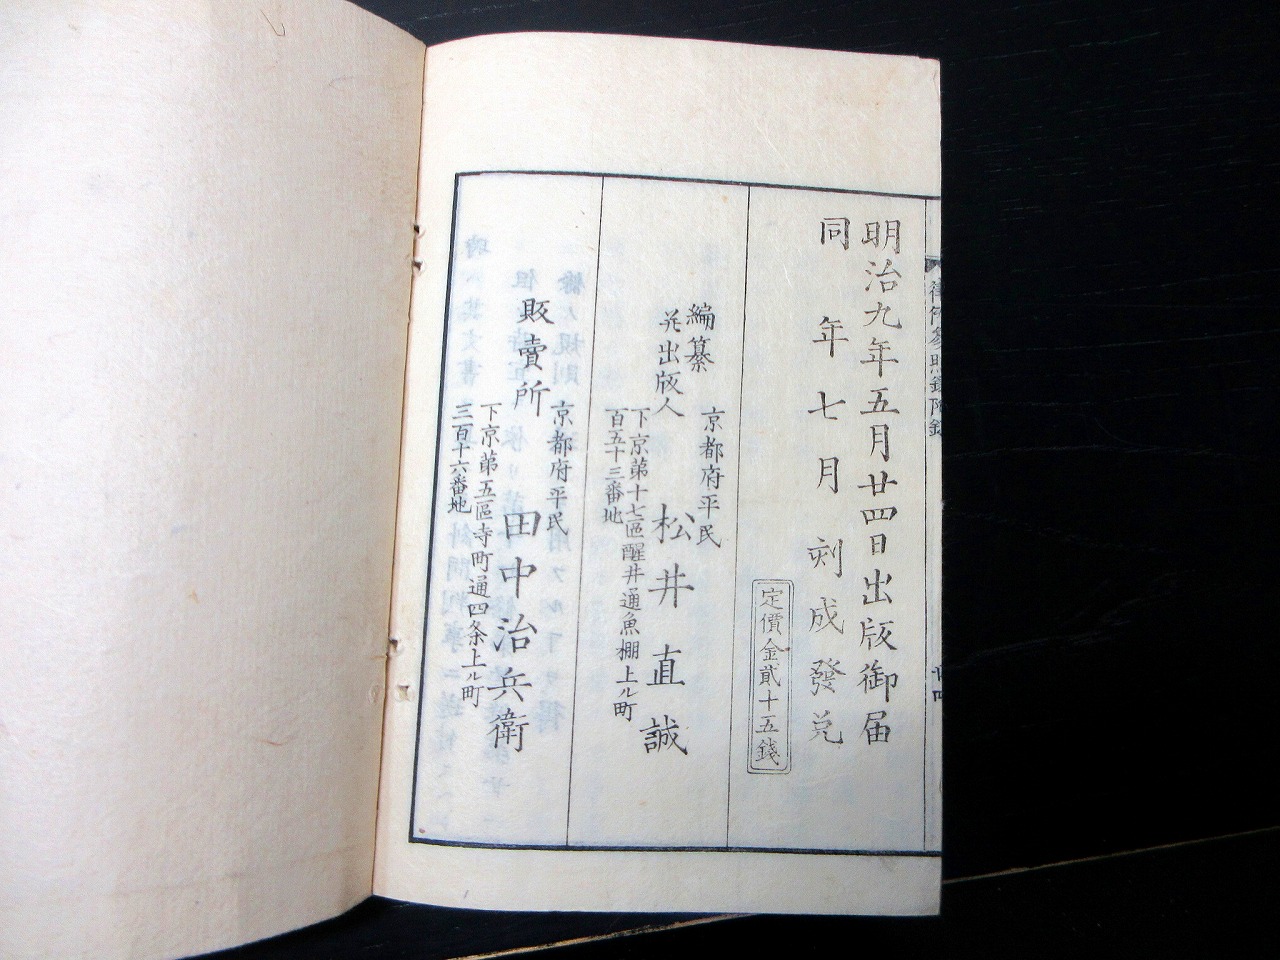 明治九年五月廿四日出版御届
同年七月刻成發兌
定價金貳十五錢
編纂
并出版人
京都府平民
松井直誠
下京第十七區醒井通魚棚上ル町
百五十三番地
販賣所
京都府平民
田中治兵衛
下京第五區寺町通四条上ル町
三百十六番地